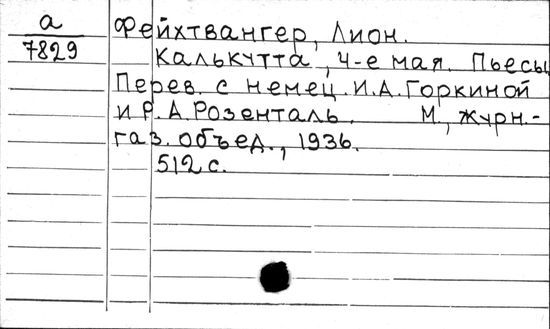 а
7829
Фейхтвангер, Лион.
Калькутта, 4-е мая. Пьесы
Перев. с немец. И.А.Горкиной
и Р.А.Розенталь. М., журн.-
газ. объед., 1936.
512 с.